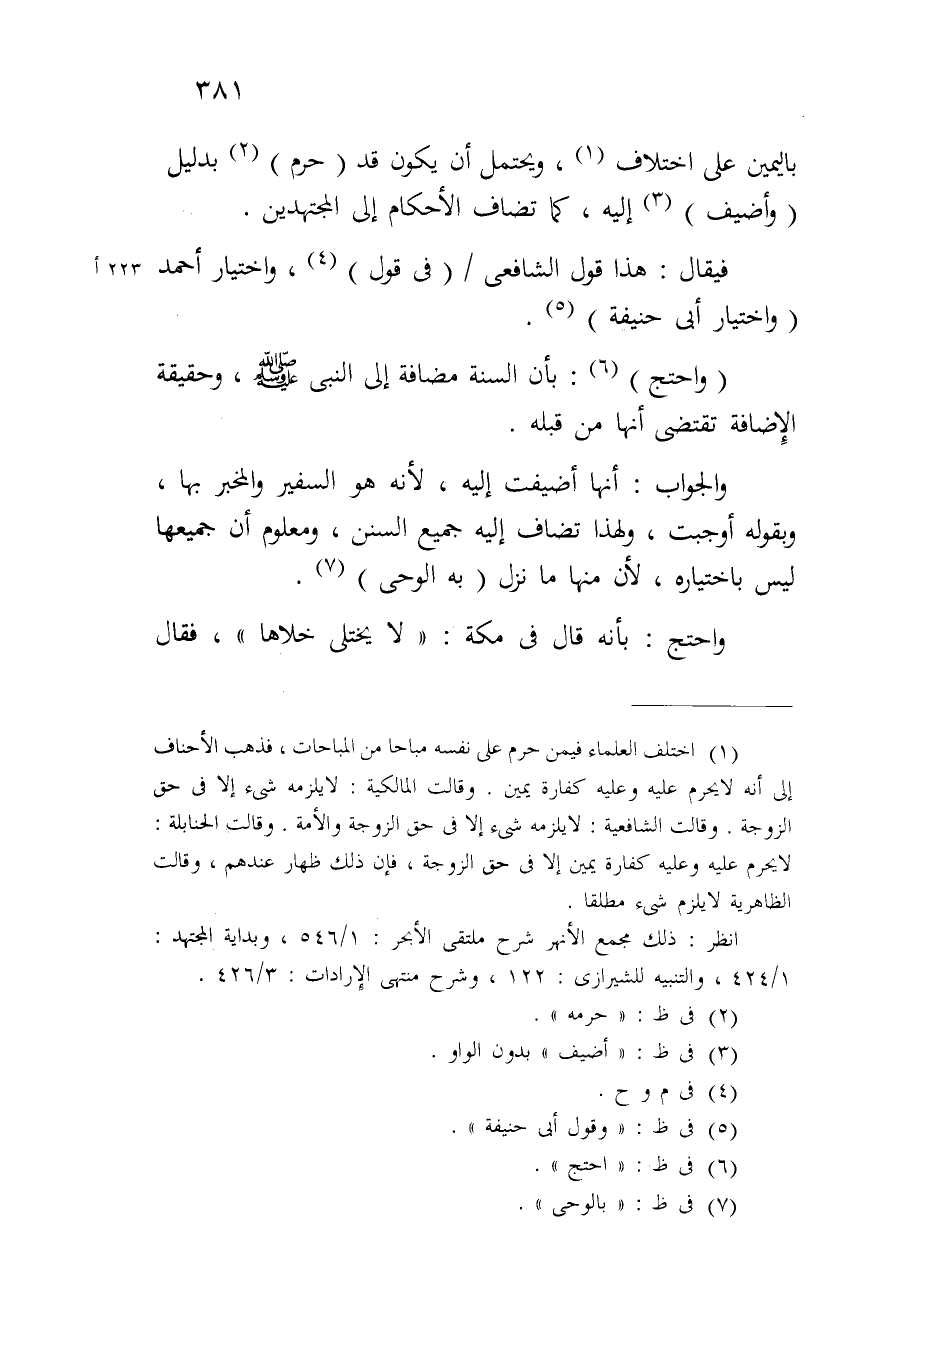 ٣٨١
باليمين على اختلاف (١) ، ويحتمل أن يكون قد ( حرم ) (٢) بدليل
( وأضيف ) (٣) إليه ، كما تضاف الأحكام إلى المجتهدين .
فيقال : هذا قول الشافعى / ( فى قول ) (٤) ، واختيار أحمد ٢٢٣ أ
( واختيار أبى حنيفة ) (٥) .
( واحتج ) (٦) : بأن السنة مضافة إلى النبى ﷺ ، وحقيقة
الإضافة تقتضى أنها من قبله .
والجواب : أنها أضيفت إليه ، لأنه هو السفير والمخبر بها ،
وبقوله أوجبت ، ولهذا تضاف إليه جميع السنن ، ومعلوم أن جميعها
ليس باختياره ، لأن منها ما نزل ( به الوحى ) (٧) .
واحتج : بأنه قال فى مكة : « لا يختلى خلاها » ، فقال
(١) اختلف العلماء فيمن حرم على نفسه مباحا من المباحات ، فذهب الأحناف
إلى أنه لايحرم عليه وعليه كفارة يمين . وقالت المالكية : لايلزمه شىء إلا فى حق
الزوجة . وقالت الشافعية : لايلزمه شىء إلا فى حق الزوجة والأمة . وقالت الحنابلة :
لايحرم عليه وعليه كفارة يمين إلا فى حق الزوجة ، فإن ذلك ظهار عندهم ، وقالت
الظاهرية لايلزم شىء مطلقا .
انظر : ذلك مجمع الأنهر شرح ملتقى الأبحر : ٥٤٦/١ ، وبداية المجتهد :
٤٢٤/١ ، والتنبيه للشيرازى : ١٢٢ ، وشرح منتهى الإرادات : ٤٢٦/٣ .
(٢) فى ظ : « حرمه » .
(٣) فى ظ : « أضيف » بدون الواو .
(٤) فى م و ح .
(٥) فى ظ : « وقول أبى حنيفة » .
(٦) فى ظ : « احتج » .
(٧) فى ظ : « بالوحى » .